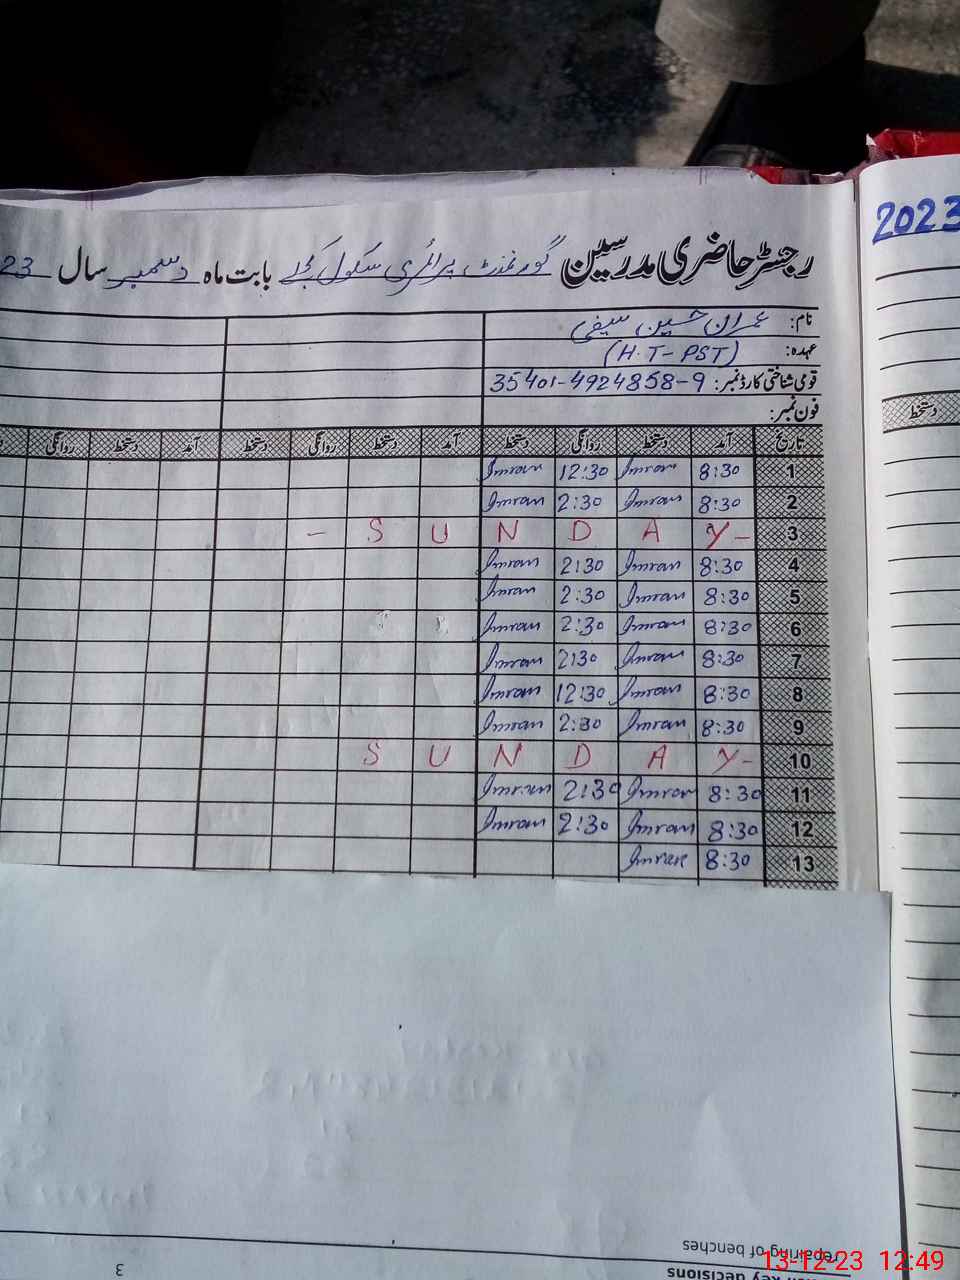 2023
رجسٹر حاضری مدرسین گورنمنٹ پرائمری سکول بابت ماہ دسمبر سال 23
نام: عمران حسین سیفی
عہدہ: (H.T-PST)
قومی شناختی کارڈ نمبر: 35401-4924858-9
فون نمبر:
تاریخ آمد دستخط روانگی دستخط آمد دستخط روانگی دستخط آمد دستخط روانگی
دستخط
1 8:30 Imran 12:30 Imran
2 8:30 Imran 2:30 Imran
3 - S U N D A Y -
4 8:30 Imran 2:30 Imran
5 8:30 Imran 2:30 Imran
6 8:30 Imran 2:30 Imran
7 8:30 Imran 2:30 Imran
8 8:30 Imran 12:30 Imran
9 8:30 Imran 2:30 Imran
10 S U N D A Y -
11 8:30 Imran 2:30 Imran
12 8:30 Imran 2:30 Imran
13 8:30 Imran
repairing of benches
3
key decisions
13-12-23 12:49